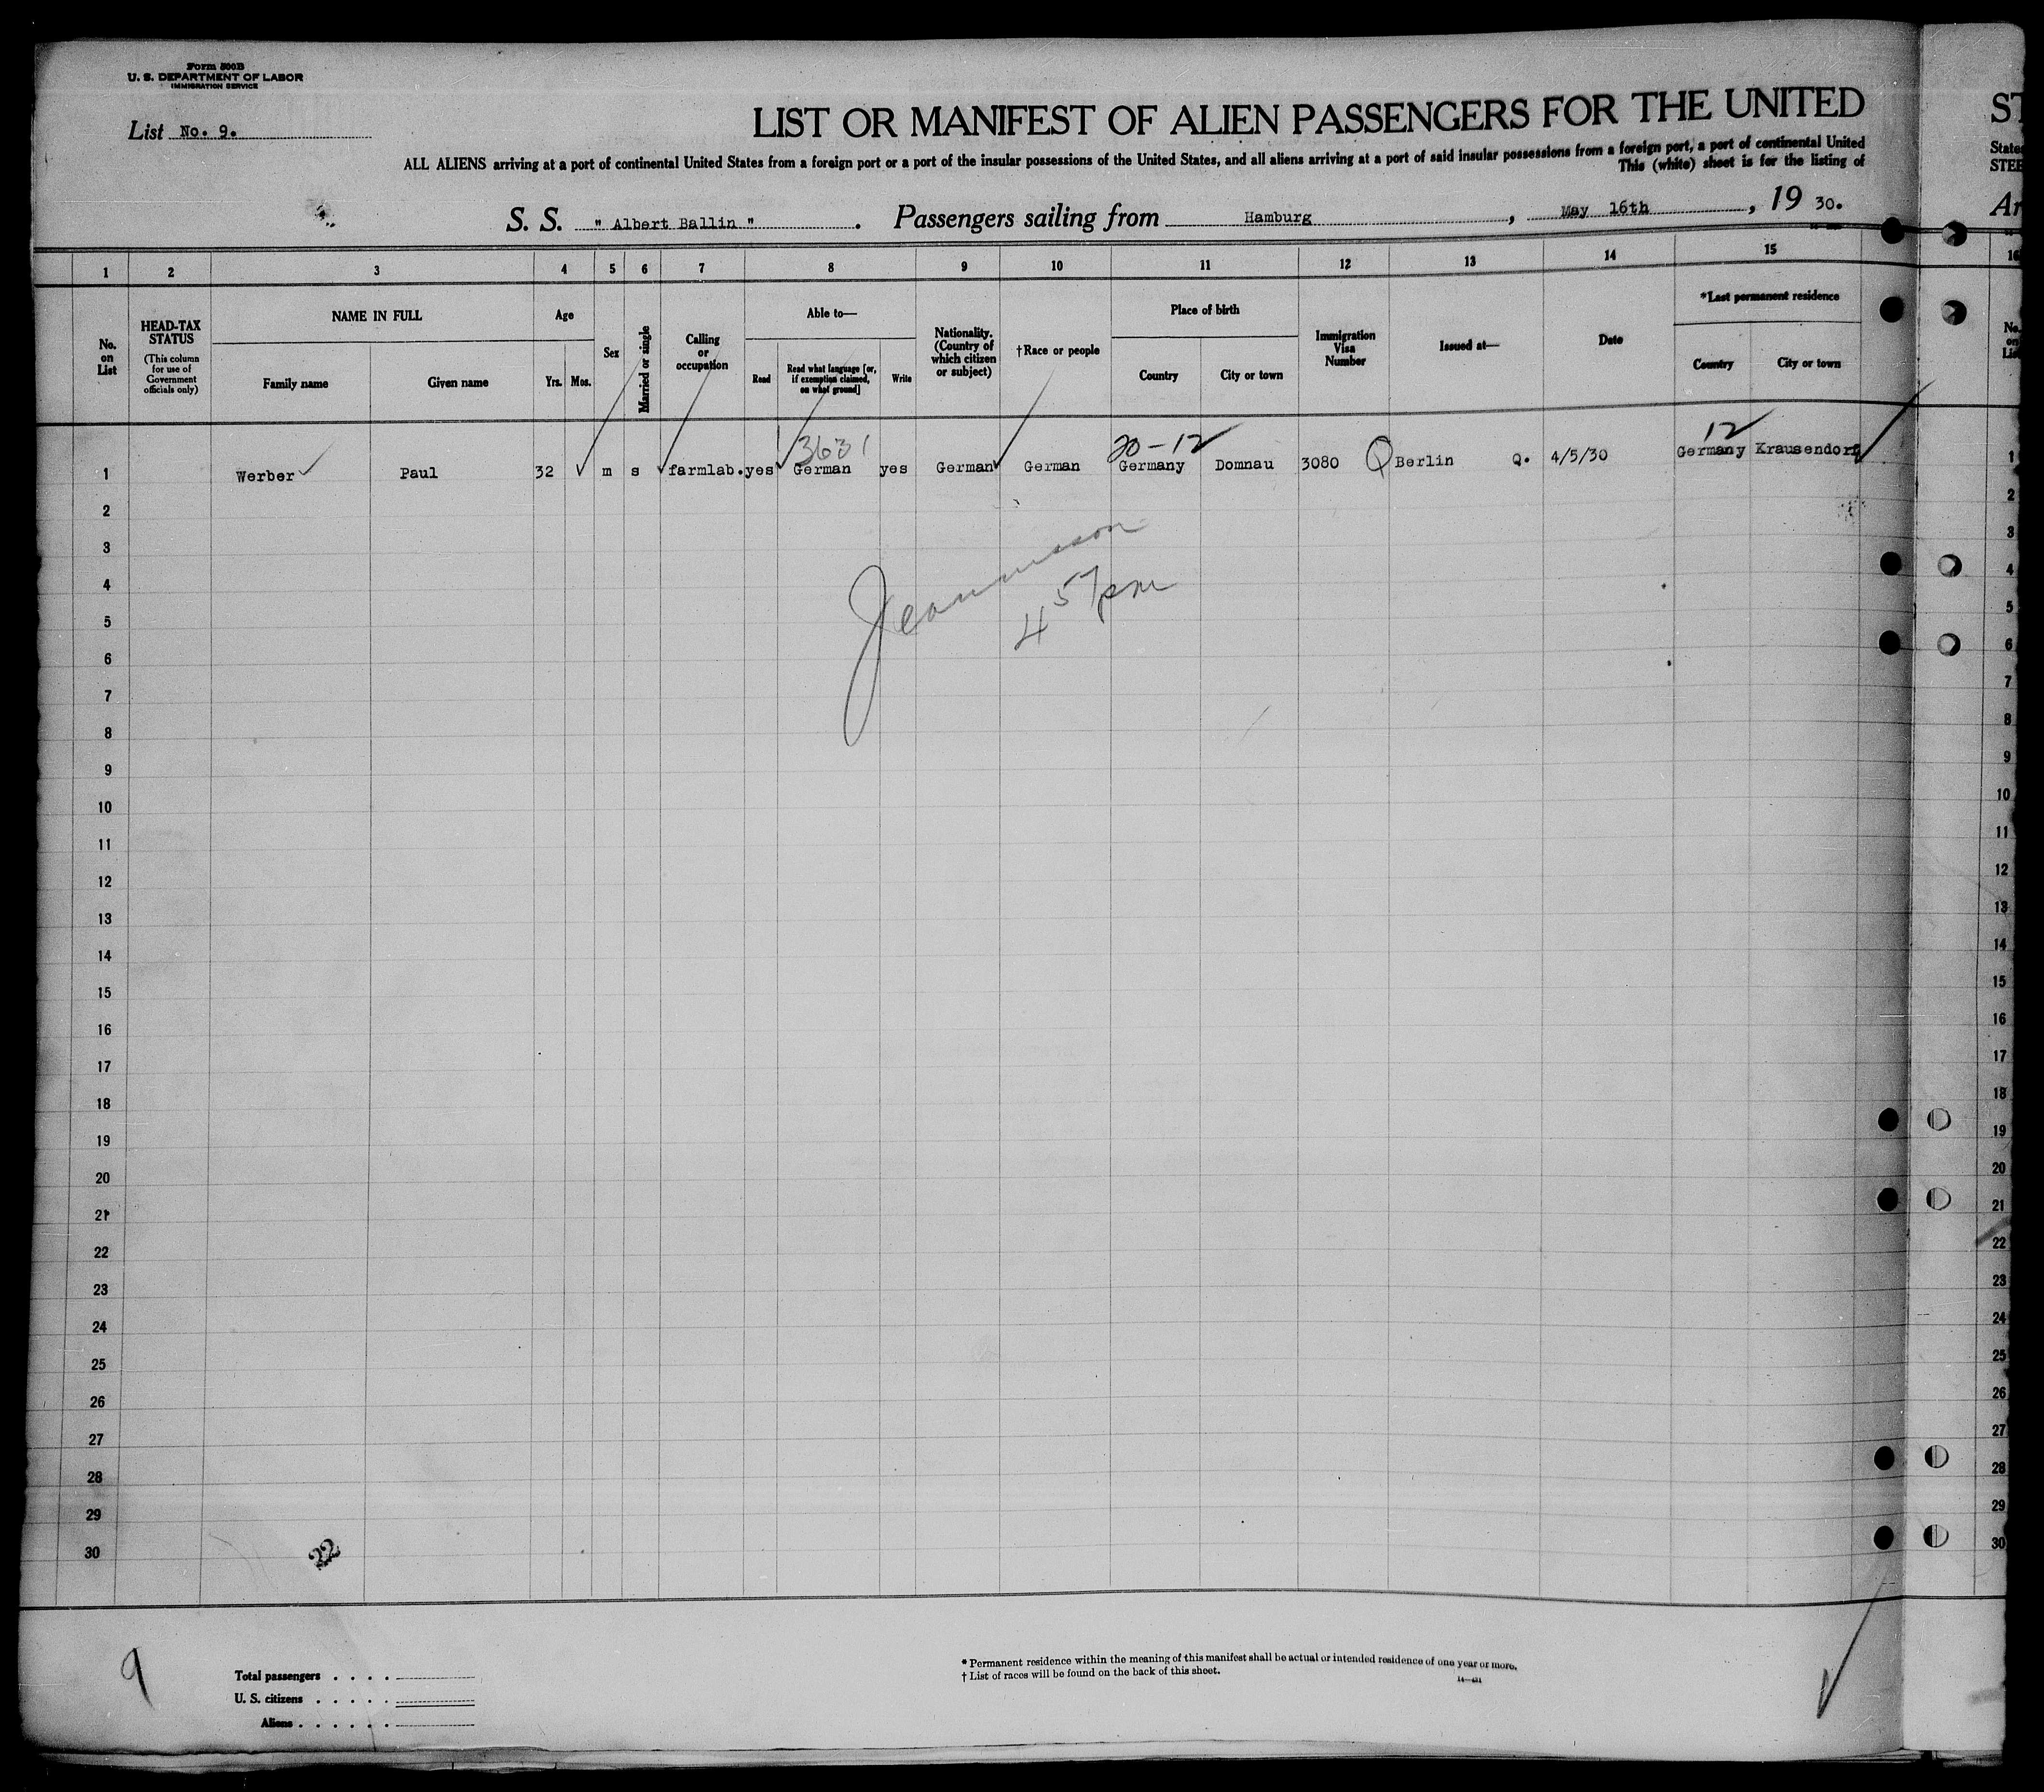 Form 500B
U. S. DEPARTMENT OF LABOR
IMMIGRATION SERVICE
List No. 9.
LIST OR MANIFEST OF ALIEN PASSENGERS FOR THE UNITED
ALL ALIENS arriving at a port of continental United States from a foreign port or a port of the insular possessions of the United States, and all aliens arriving at a port of said insular possessions from a foreign port, a port of continental United
This (white) sheet is for the listing of
S. S. " Albert Ballin ". Passengers sailing from Hamburg, May 16th, 19 30.
1 2 3 4 5 6 7 8 9 10 11 12 13 14 15
No. on List
HEAD-TAX STATUS
(This column for use of Government officials only)
NAME IN FULL
Family name Given name
Age
Yrs. Mos.
Sex
Married or single
Calling or occupation
Able to—
Read
Read what language [or, if exemption claimed, on what ground]
Write
Nationality. (Country of which citizen or subject)
†Race or people
Place of birth
Country City or town
Immigration Visa Number
Issued at—
Date
*Last permanent residence
Country City or town
3631 20-12 12
1 Werber Paul 32 m s farmlab. yes German yes German German Germany Domnau 3080 Q Berlin Q. 4/5/30 Germany Krausendorf
2
3
4
5
4 57 pm
6
7
8
9
10
11
12
13
14
15
16
17
18
19
20
21
22
23
24
25
26
27
28
29
30
22
9
Total passengers . . . .
U. S. citizens . . . . .
Aliens . . . . . .
* Permanent residence within the meaning of this manifest shall be actual or intended residence of one year or more.
† List of races will be found on the back of this sheet.
ST
States
STEE
Ar
16
No. on List
1
2
3
4
5
6
7
8
9
10
11
12
13
14
15
16
17
18
19
20
21
22
23
24
25
26
27
28
29
30